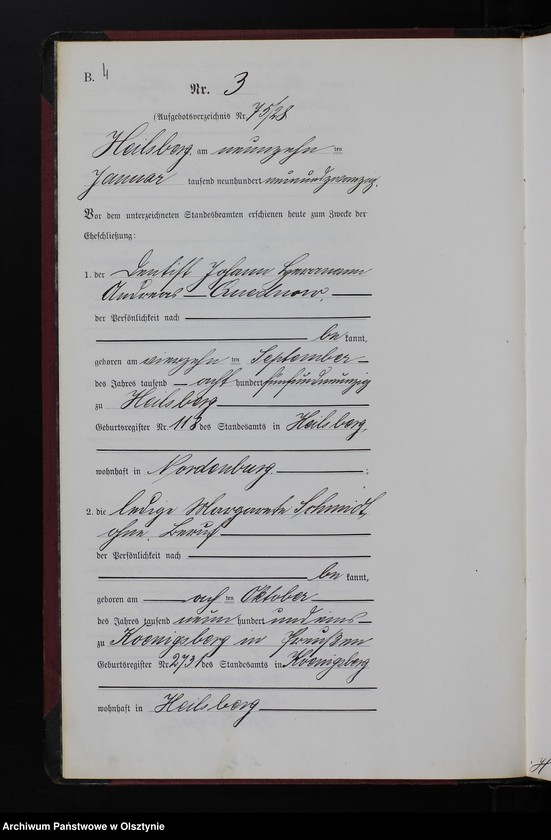 B. 4
Nr. 3
(Aufgebotsverzeichnis Nr. 75/28
Heilsberg, am neunzehn ten
Januar tausend neunhundert neunundzwanzig.
Vor dem unterzeichneten Standesbeamten erschienen heute zum Zwecke der
Eheschließung:
1. der Dentist Johann Herrmann
Andreas Quednow,
der Persönlichkeit nach
be kannt,
geboren am vierzehn ten September
des Jahres tausend acht hundert fünfundneunzig
zu Heilsberg
Geburtsregister Nr. 113 des Standesamts in Heilsberg,
wohnhaft in Nordenburg ;
2. die ledige Margarete Schmidt,
ohne Beruf
der Persönlichkeit nach
be kannt,
geboren am acht ten Oktober
des Jahres tausend neun hundert und eins
zu Koenigsberg in Preußen
Geburtsregister Nr. 273 des Standesamts in Koenigsberg
wohnhaft in Heilsberg
Archiwum Państwowe w Olsztynie